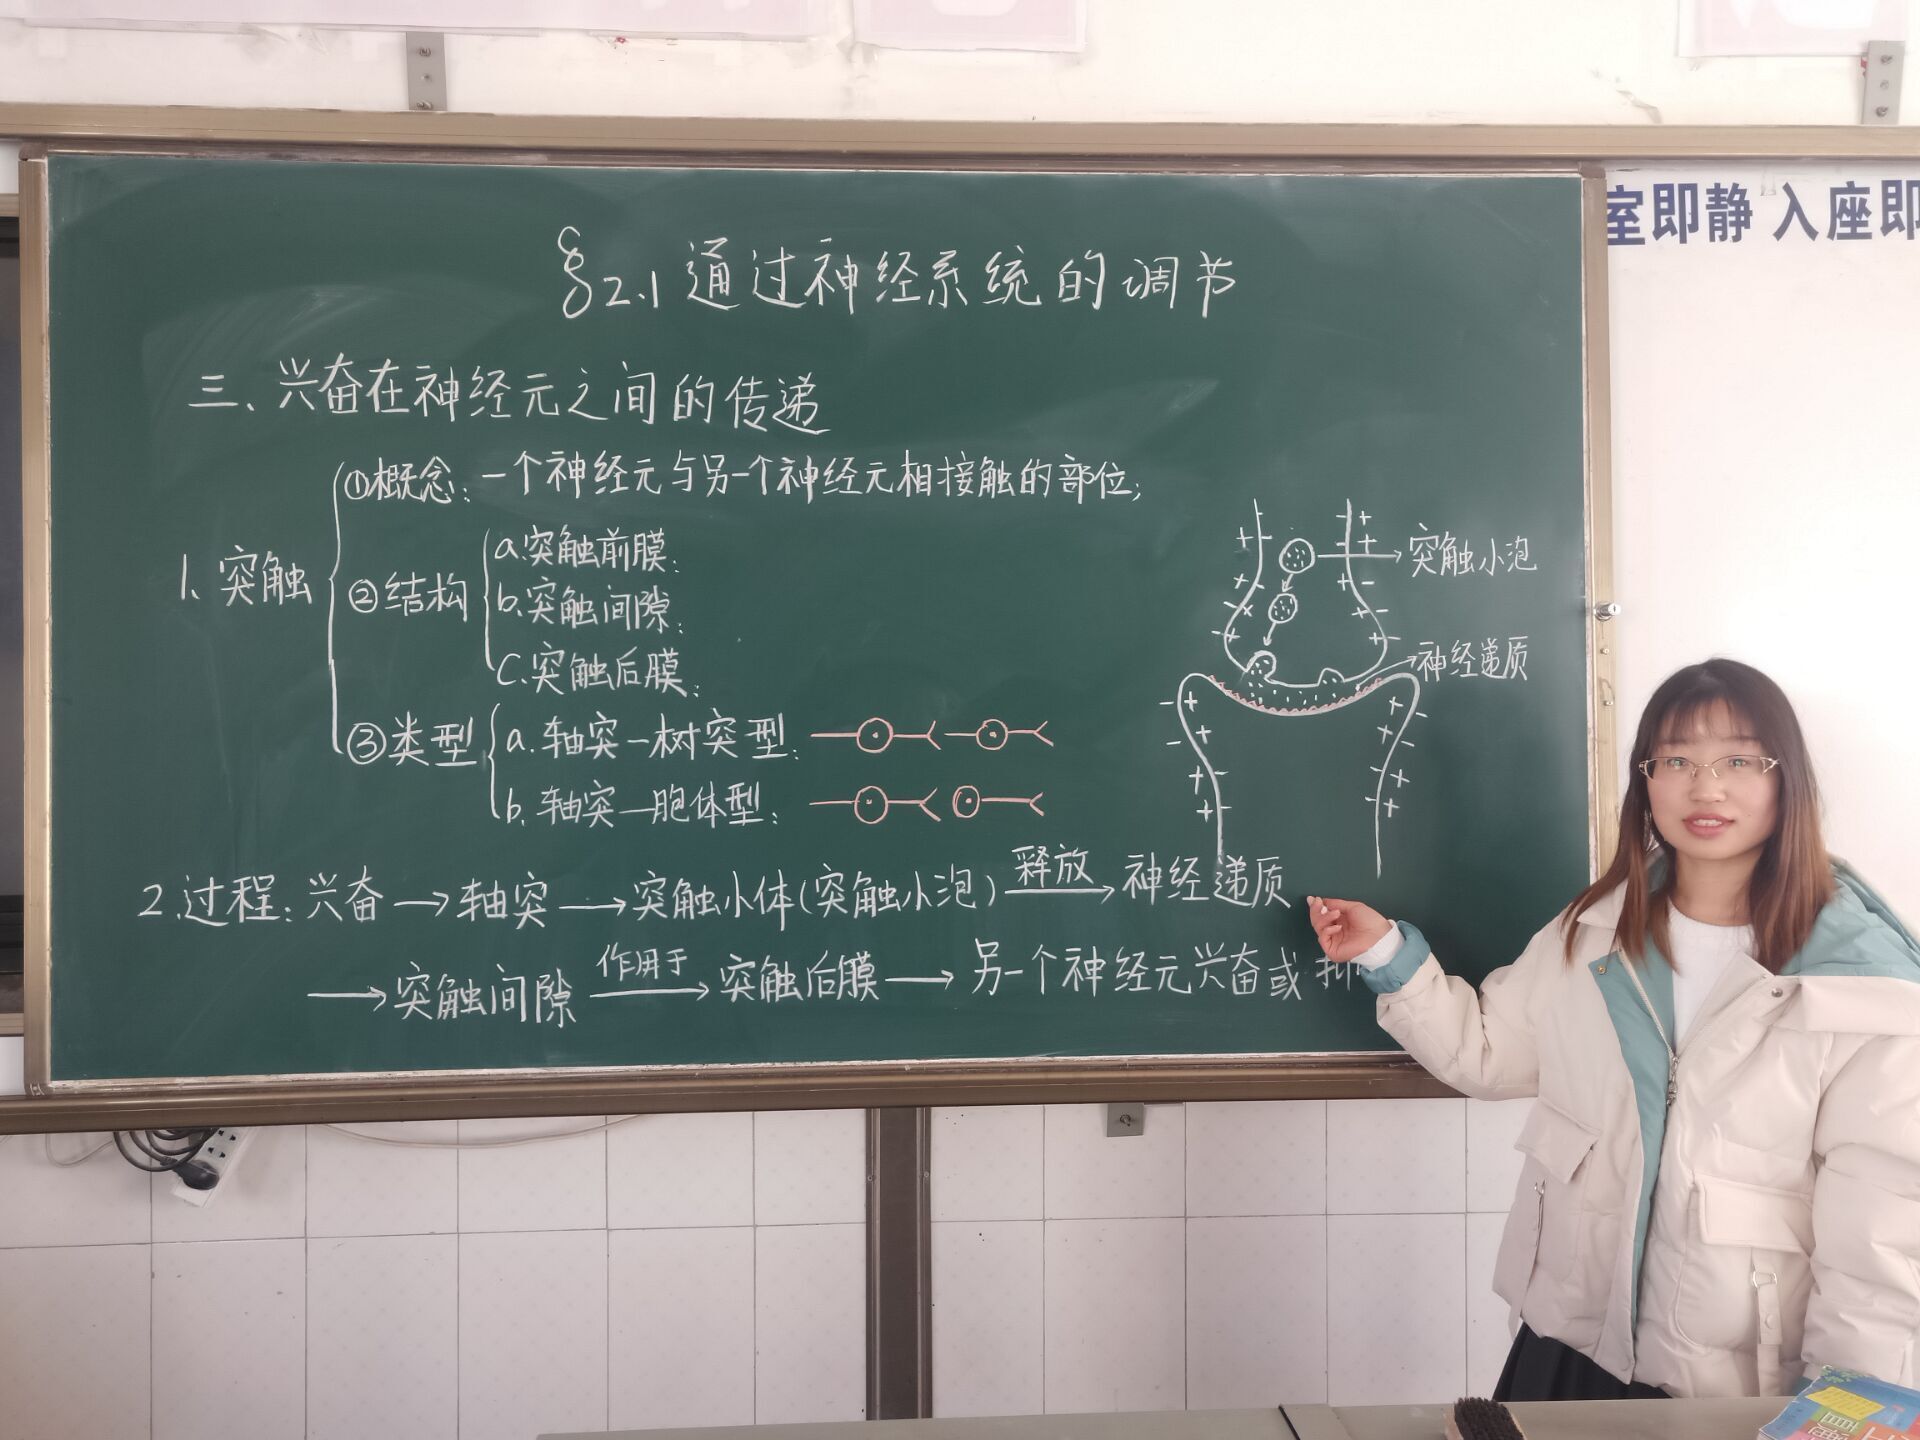 §2.1 通过神经系统的调节
室即静 入座即
三、兴奋在神经元之间的传递
1、突触
①概念：一个神经元与另一个神经元相接触的部位；
②结构
a.突触前膜：
b.突触间隙：
c.突触后膜：
③类型
a.轴突—树突型：
b.轴突—胞体型：
突触小泡
神经递质
2.过程：兴奋→轴突→突触小体(突触小泡) 释放→神经递质
→突触间隙 作用于→突触后膜→另一个神经元兴奋或